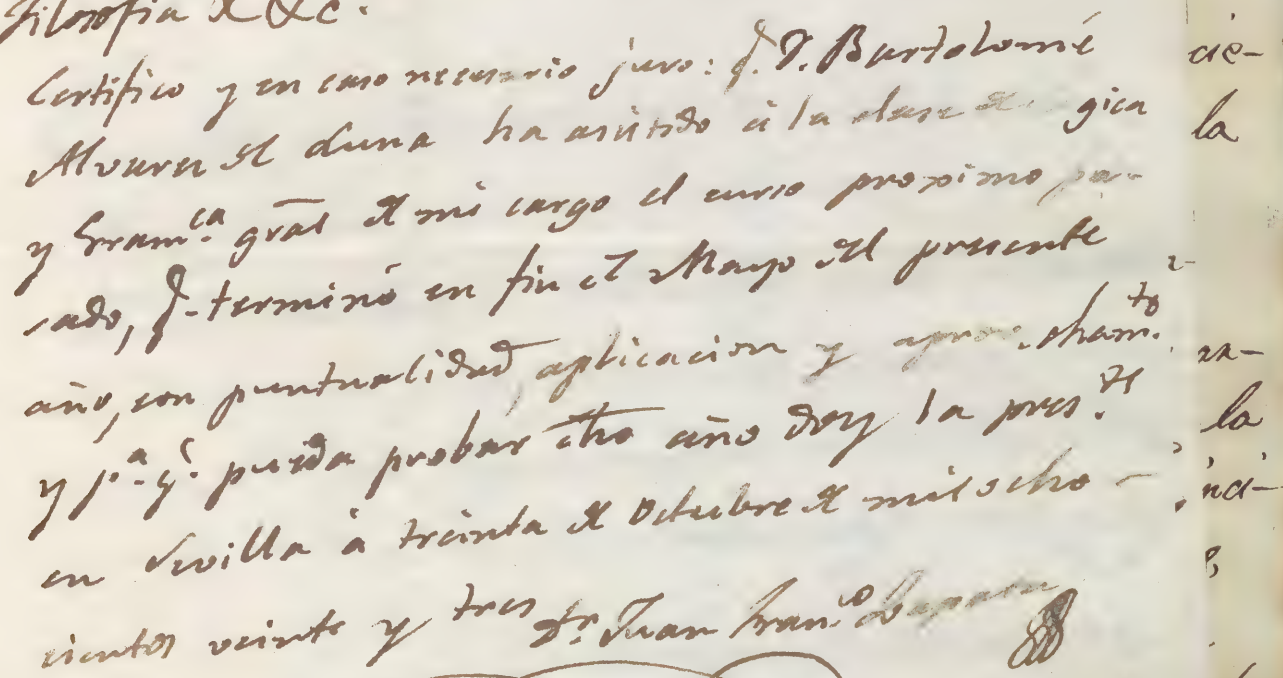 filosofia &c.
Certifico y en caso necesario juro: q. D. Bartolomé
Alvarez de Luna ha asistido á la clase de gica
y Gram.ca gral de mi cargo el curso proximo pa-
sado, q. terminó en fin de Mayo del presente
año, con puntualidad, aplicacion y apro cham.to
y p.a q.e pueda probar dho año doy la pres.te
en Sevilla á treinta de Octubre de mil ocho-
cientos veinte y tres Dr. Juan Fran.co
cie-
la
la
nci-